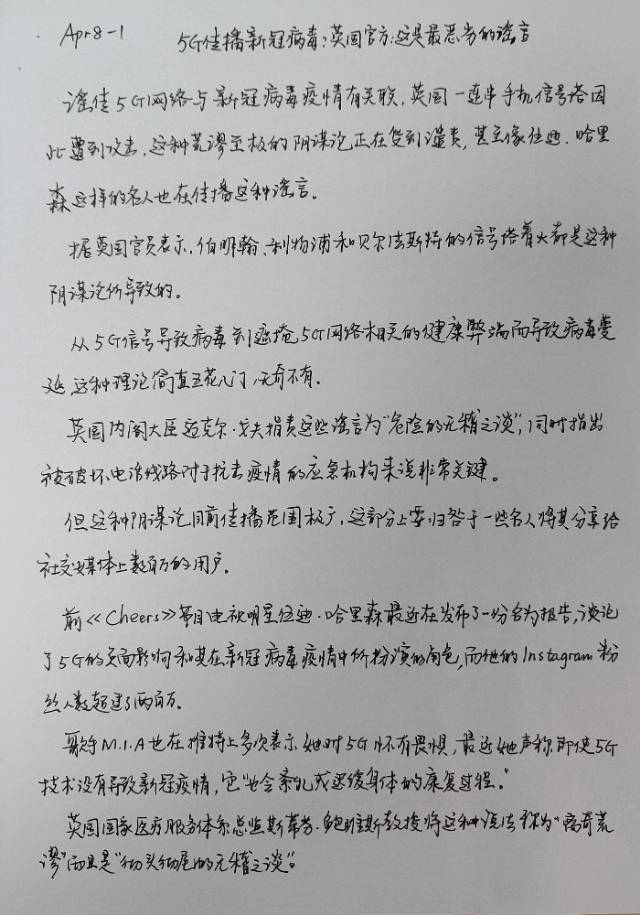 Apr 8-1 5G传播新冠病毒?英国官方:这是最恶劣的谣言
谣传5G网络与新冠病毒疫情有关联,英国一连串手机信号塔因
此遭到攻击,这种荒谬至极的阴谋论正在受到谴责,甚至像伍迪·哈里
森这样的名人也在传播这种谣言。
据英国官员表示,伯明翰、利物浦和贝尔法斯特的信号塔着火都是这种
阴谋论所导致的。
从5G信号导致病毒到遮掩5G网络相关的健康弊端而导致病毒蔓
延,这种理论简直五花八门,无奇不有.
英国内阁大臣迈克尔·戈夫指责这些谣言为“危险的无稽之谈”,同时指出
被破坏电话线路对于抗击疫情的应急机构来说非常关键。
但这种阴谋论目前传播范围极广,这部分上要归咎于一些名人将其分享给
社交媒体上数百万的用户.
前《Cheers》节目电视明星伍迪·哈里森最近在发布了一份名为报告,谈论
了5G的负面影响和其在新冠病毒疫情中所扮演的角色,而他的Instagram粉
丝人数超过了两百万.
歌手M.I.A也在推特上多次表示她对5G怀有畏惧,最近她声称,即使5G
技术没有导致新冠疫情,它“也会紊乱或延缓身体的康复过程。”
英国国家医疗服务体系总监斯蒂芬·鲍维斯教授将这种说法称为“离奇荒
谬”而且是“彻头彻尾的无稽之谈”。